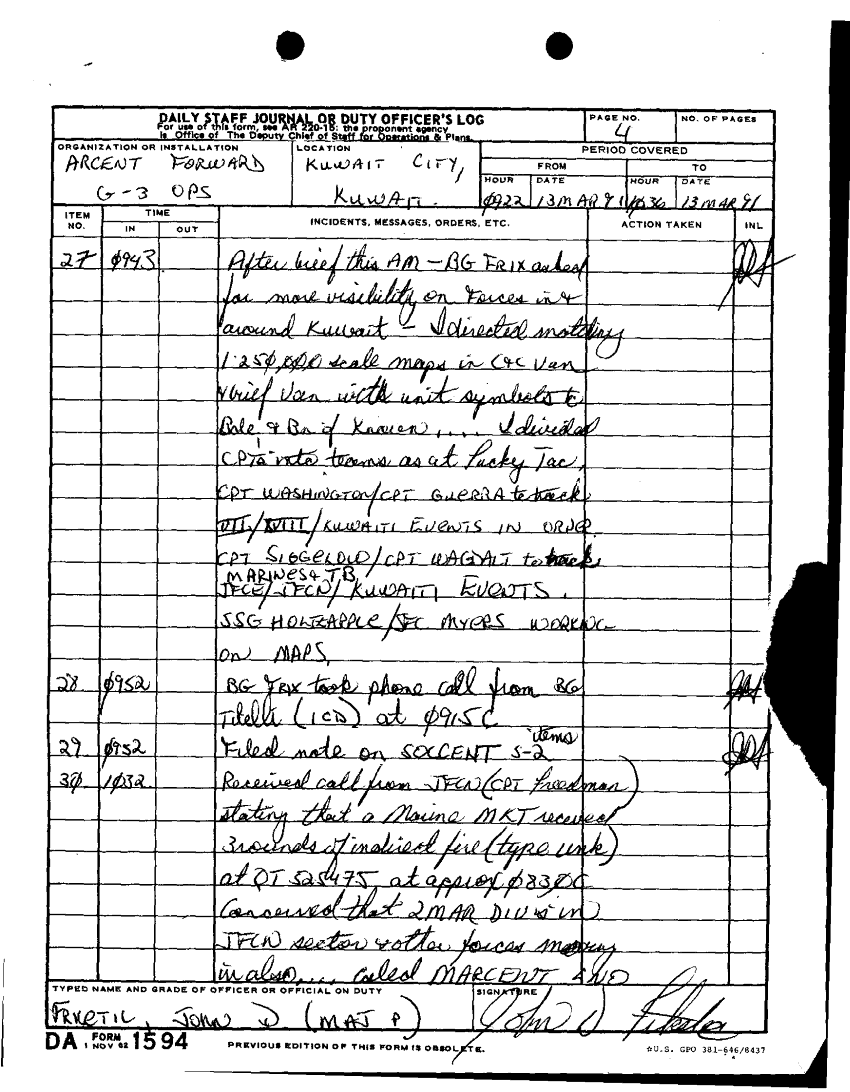 DAILY STAFF JOURNAL OR DUTY OFFICER'S LOG
For use of this form, see AR 220-15; the proponent agency
is Office of The Deputy Chief of Staff for Operations & Plans.
PAGE NO.
4
NO. OF PAGES
ORGANIZATION OR INSTALLATION
ARCENT FORWARD
G-3 OPS
LOCATION
KUWAIT CITY,
KUWAIT.
PERIOD COVERED
FROM
TO
HOUR DATE HOUR DATE
0922 13 MAR 91 1036 13 MAR 91
ITEM NO.
TIME
IN OUT
INCIDENTS, MESSAGES, ORDERS, ETC.
ACTION TAKEN
INL
27 0943 After brief this AM - BG FRIX asked
for more visibility on Forces in &
around Kuwait - I directed matching
1:250,000 scale maps in C&C Van
& brief Van with unit symbols to
Bde, & Bn if Known, .... I divided
CPTs into teams as at Lucky Tac,
CPT WASHINGTON/CPT GUERRA to track
VII/XVIII/KUWAITI EVENTS IN ORDER.
CPT /CPT to track
MARINES &
JFCE/JFCN/KUWAITI EVENTS.
SSG HOLTZAPPLE/SFC MYERS WORKING
on MAPS,
28 0952 BG FRIX took phone call from BG
Tilelli (1CD) at 0915C
29 0952 Filed note on SOCCENT S-2 items
30 1032 Received call from JFCN (CPT Freedman)
stating that a Marine MKT received
3 rounds of indirect fire (type unk)
at QT 525475, at approx 0830C
Concerned that 2 MAR DIV is in
JFCN sector & other forces moving
in also, ... called MARCENT AND
TYPED NAME AND GRADE OF OFFICER OR OFFICIAL ON DUTY
FRKETIC, JOHN D (MAJ P)
SIGNATURE
DA FORM 1 NOV 62 1594
PREVIOUS EDITION OF THIS FORM IS OBSOLETE.
☆U.S. GPO 381-646/8437